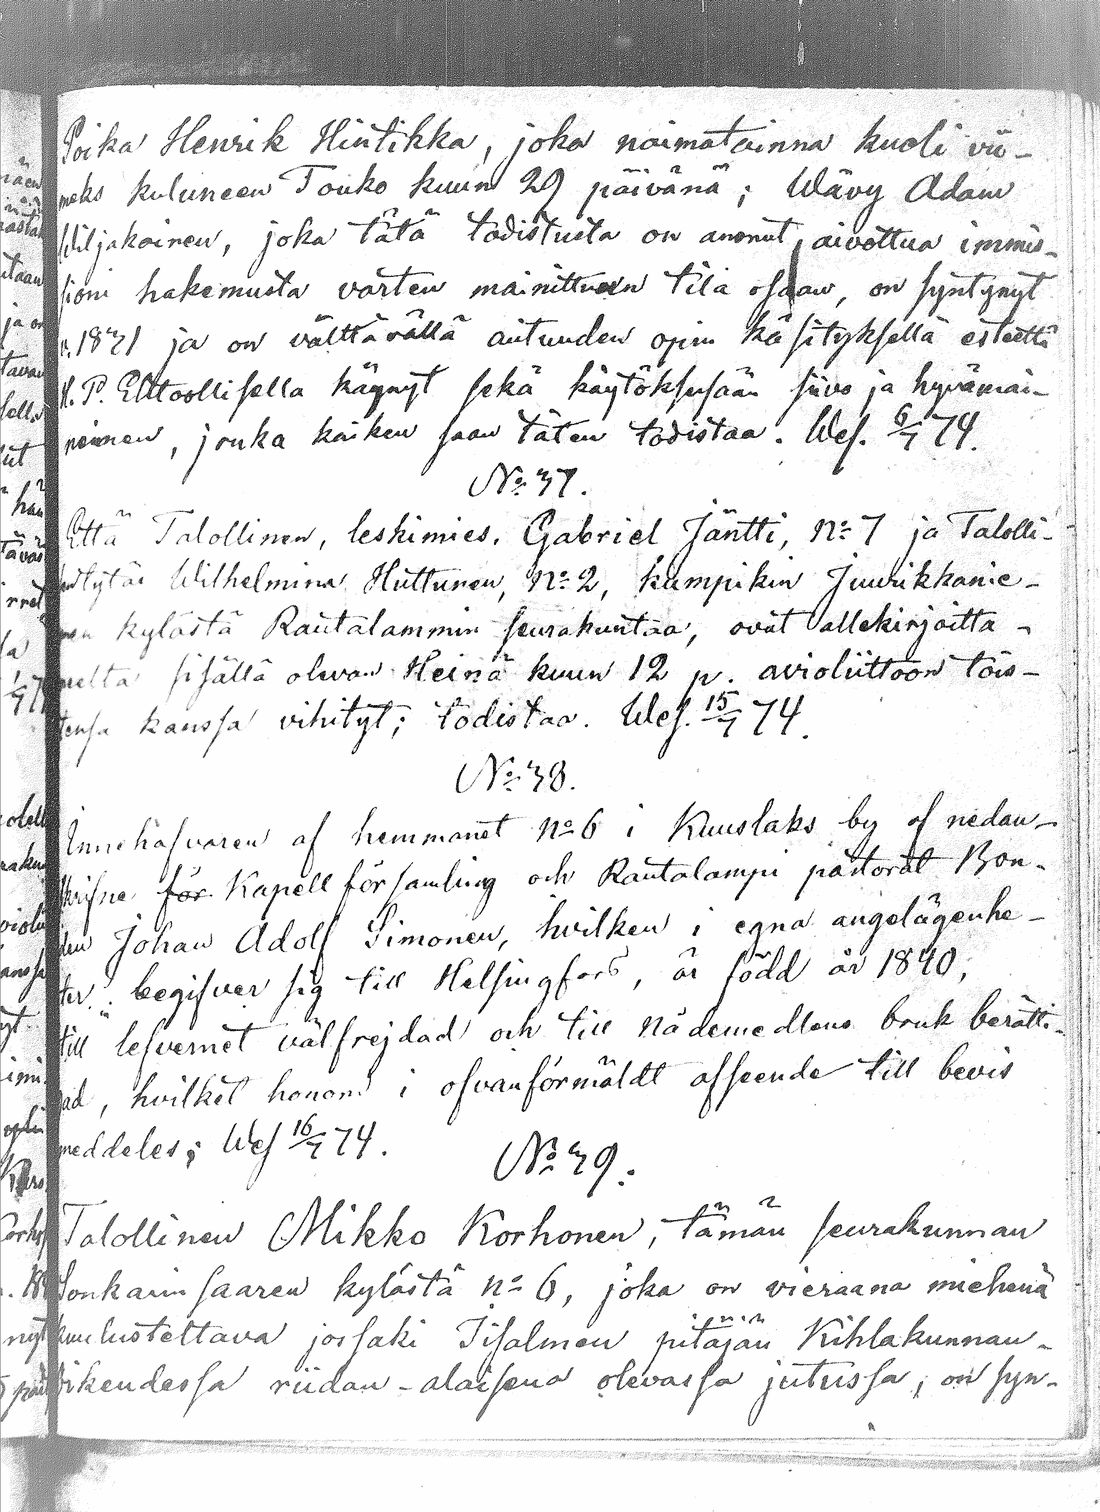 Poika Henrik Hintikka, joka naimatoinna kuoli vii-
meks kuluneen Touko kuun 29 päivänä; Wävy Adam
Wiljakainen, joka tätä todistusta on anonut, aivottua immis-
sioni hakemusta varten mainittuun tila osaan, on syntynyt
v. 1841 ja on välttävällä autuuden opin käsityksellä esteettä
H. P. Ehtoollisella käynyt sekä käytöksesään siivo ja hyvämai-
neinen, jonka kaiken saan täten todistaa. Wes. 6/7 74.
No 37.
Että Talollinen, leskimies, Gabriel Jäntti, No 7 ja Talolli-
Wilhelmina Huttunen, No 2, kumpikin Juurikkanie-
men kylästä Rautalammin seurakuntaa, ovat allekirjoitta-
neelta sisällä olevan Heinä kuun 12 p. avioliittoon tois-
tensa kanssa vihityt; todistaa. Wes. 15/7 74.
No 38.
Innehafvaren af hemmanet No 6 i Kuuslaks by af nedan-
skrifne för Kapell församling och Rautalampi pastorat Bon-
den Johan Adolf Simonen, hvilken i egna angelägenhe-
ter begifver sig till Helsingfors, är född år 1840,
till lefvernet välfrejdad och till nådemedlens bruk berätti-
gad, hvilket honom i ofvanförmäldt afseende till bevis
meddeles; Wes 16/7 74.
No 39.
Talollinen Mikko Korhonen, tämän seurakunnan
Sonkarin saaren kylästä No 6, joka on vieraana miehenä
kuulusteltava jossaki Iisalmen pitäjän Kihlakunnan-
oikeudessa riidan-alaisena olevassa jutussa, on syn-